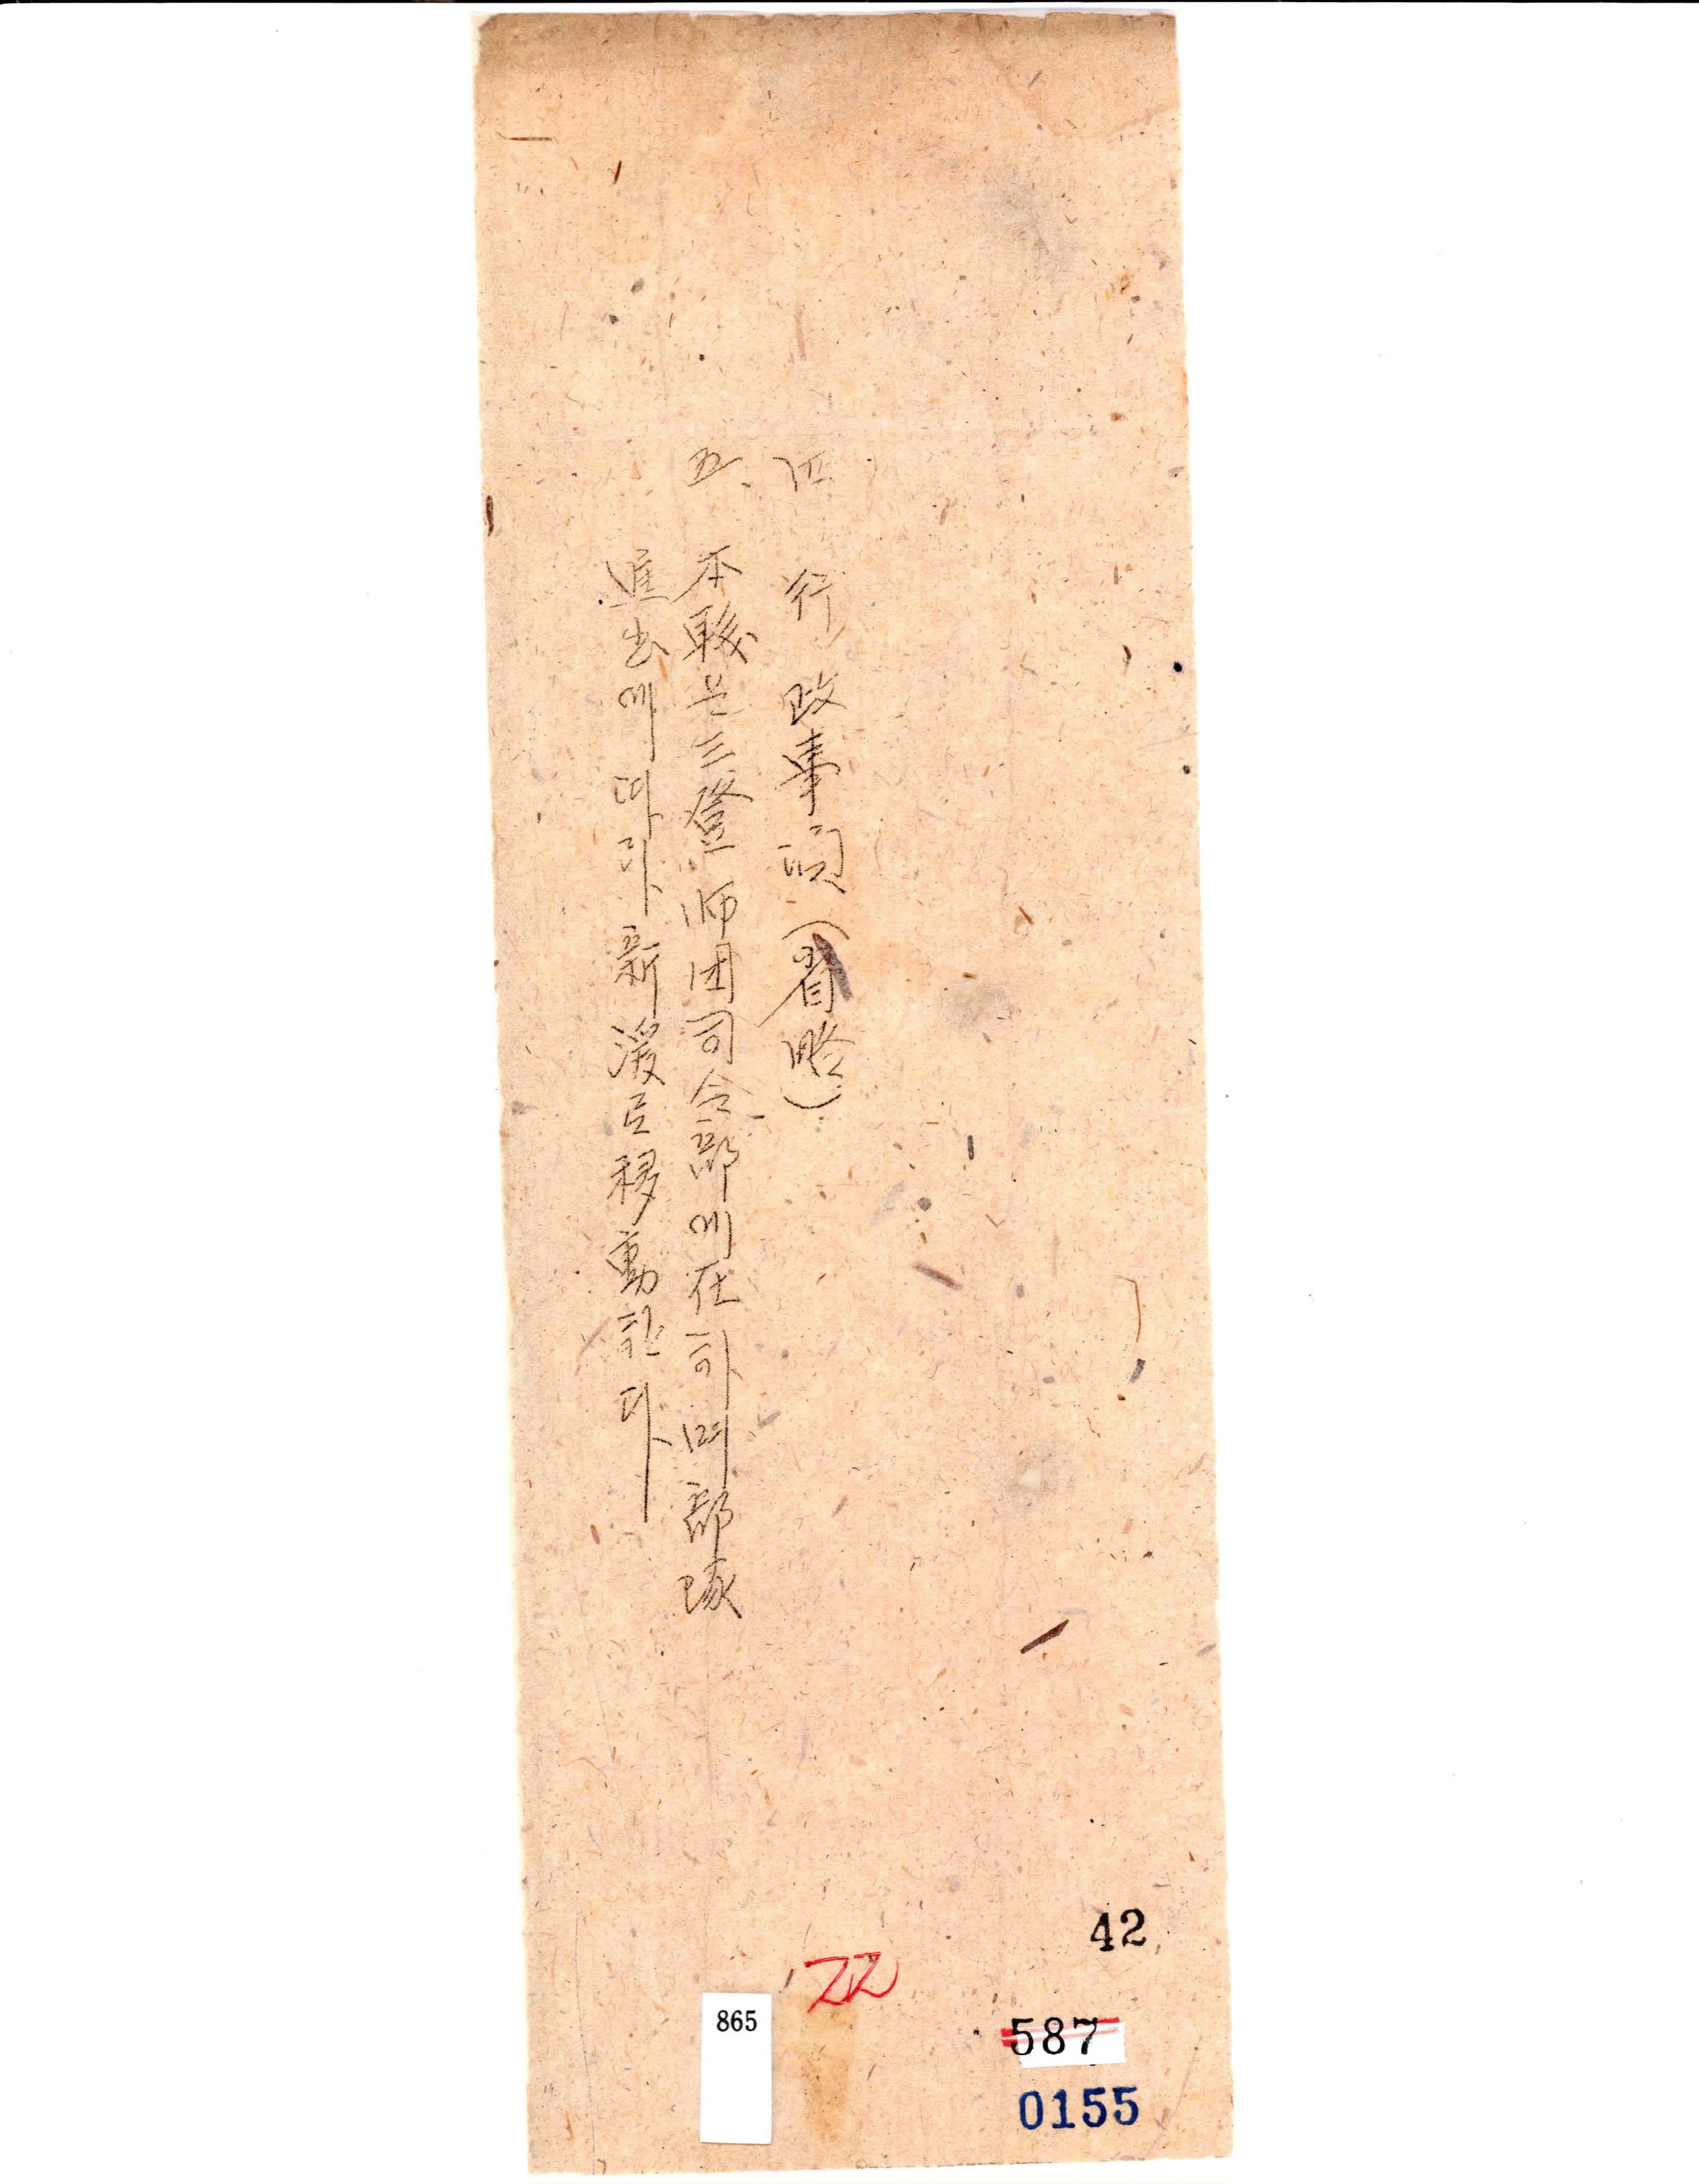 四 行政事項(省略)
五、本職은三登師団司令部에在하며部隊
進出에따라新溪로移動한다
42
22
865
587
0155